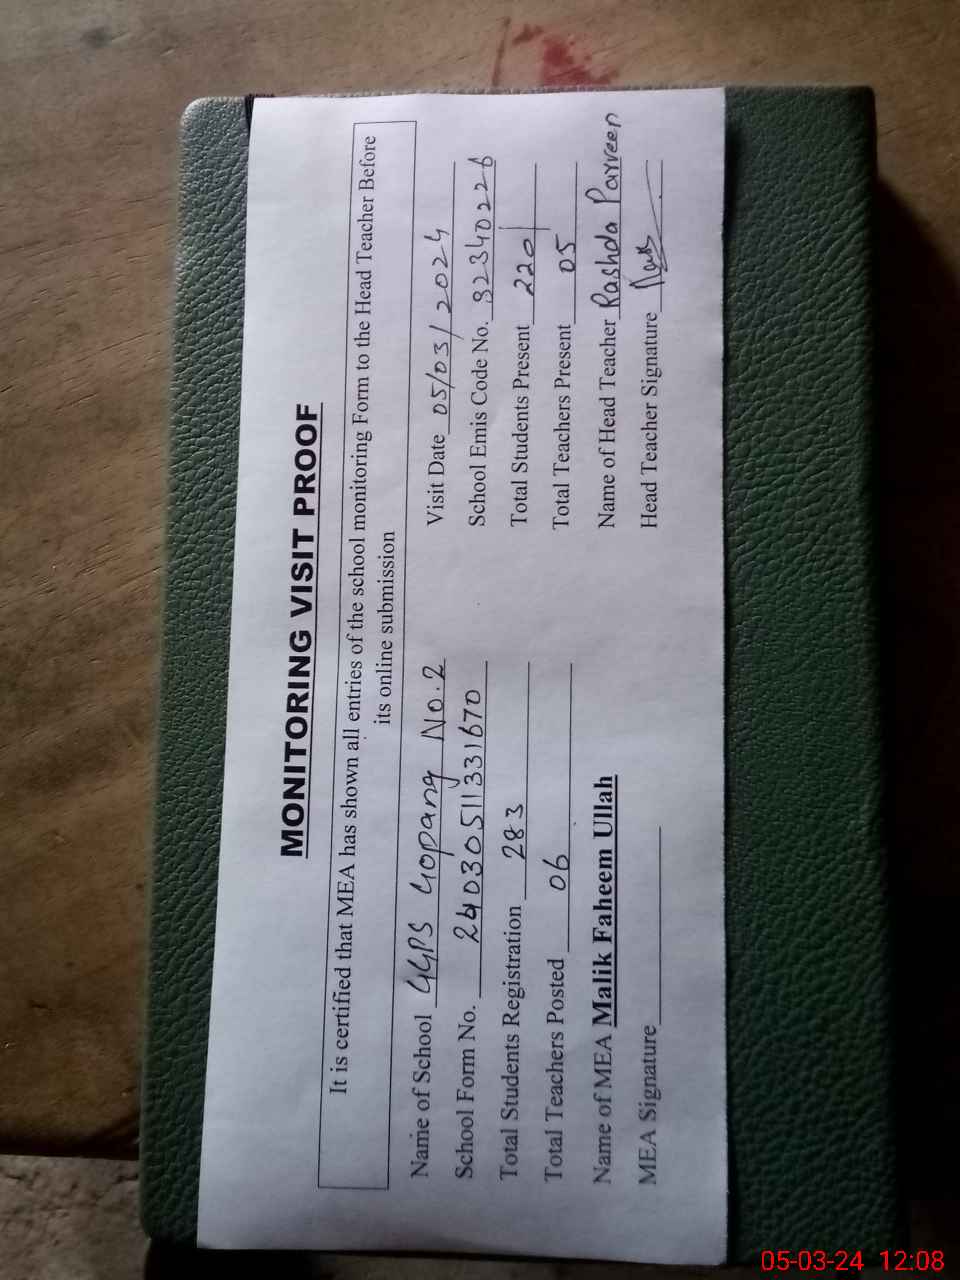 MONITORING VISIT PROOF
It is certified that MEA has shown all entries of the school monitoring Form to the Head Teacher Before
its online submission
Name of School GGPS Gopang No.2 Visit Date 05/03/2024
School Form No. 24030511331670 School Emis Code No. 32340226
Total Students Registration 283 Total Students Present 220
Total Teachers Posted 06 Total Teachers Present 05
Name of MEA Malik Faheem Ullah Name of Head Teacher Rashda Parveen
MEA Signature Head Teacher Signature
05-03-24 12:08